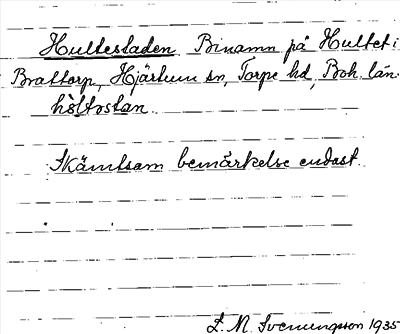 Hultestaden Binamn på Hultet i
Brattorp, Hjärtum sn, Torpe hd, Boh. län.
hòltostan
Skämtsam bemärkelse endast.
L. M. Svenungsson 1935